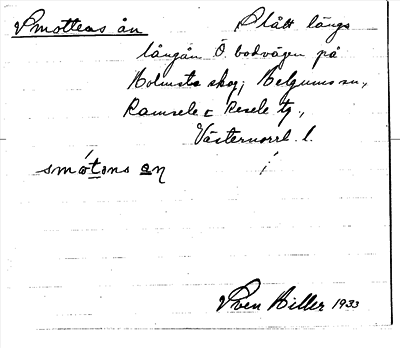 Smottens ån Slått längs
långån Ö. bodvägen på
Holmsta skog; Helgums sn.,
Ramsele o Resele tg.,
Västernorrl. l.
smótons ən
Sven Hiller 1933